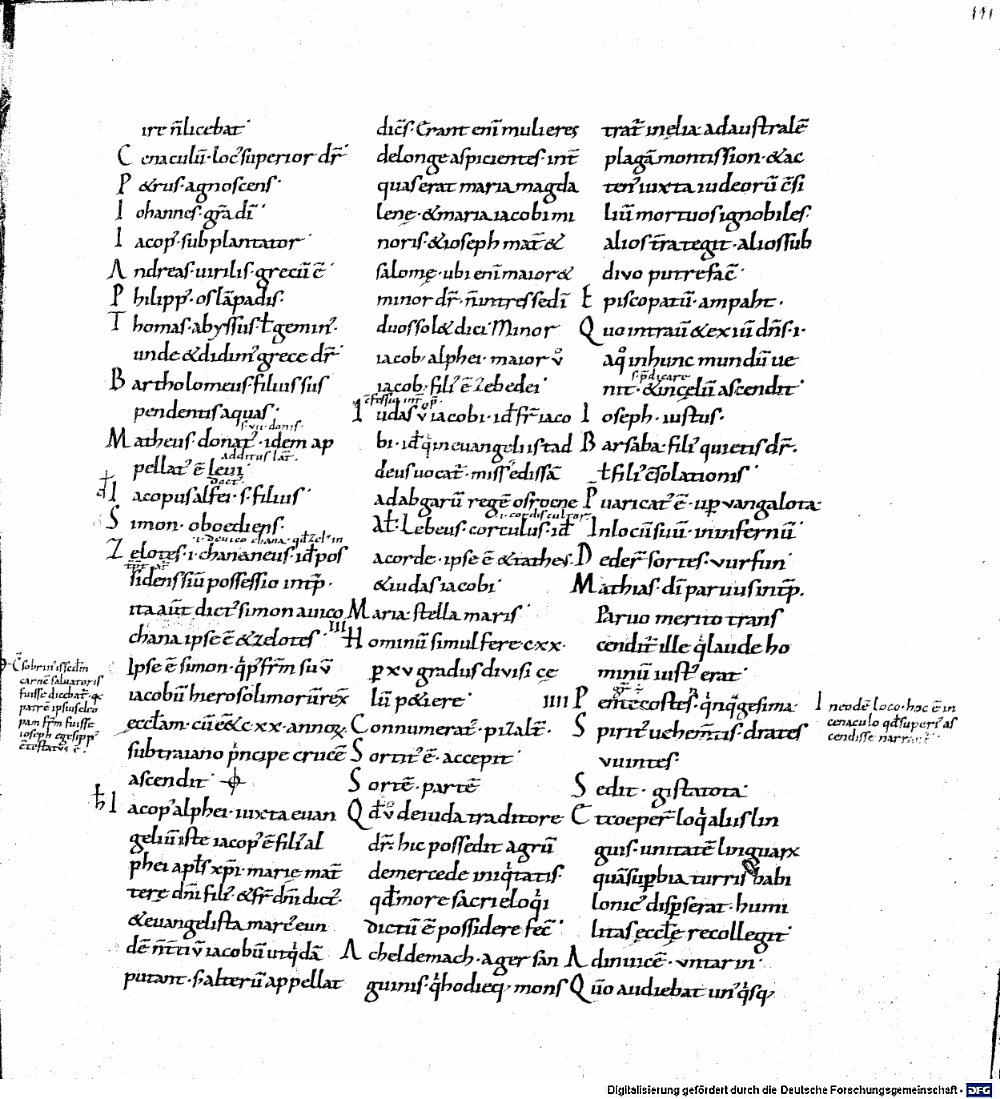 ire n̄ licebat·
C enaculū· loc᷒ superior dr̄·
P &rus· agnoscens·
I ohannes· gr̄a dī·
I acop᷒· subplantator·
A ndreas· uirilis· grecū ē·
P hilipp᷒· os lāpadis·
T homas· abyssus ł gemin᷒·
unde & didim᷒ grece dr̄·
B artholomeus· filius sus
pendentis aquas·
s· vii· donis·
M atheus donat᷒· idem ap
additus lat̄·
pellat᷒ ē leui·
I acopus alfei· s· filius·
S imon· oboediens·
Z elotes· i· chananeus· id̄ pos
sidens siū possessio intp̄·
ita aūt dict᷒ simon a uico
chana ipse ē & zelotes·
Ipse ē simon· q̇ p᷒ fr̄m suū
iacobū hierosolimorū rex
eccłam· cū ēēt cxx· annoꝝ
sub traiano p̍ncipe crucē
ascendit·
I acop᷒ alphei· iuxta euan
geliū iste iacop᷒ ē fili᷒ al
phei apłs xp̄i· marie mat̄
tere dn̄i fili᷒· & fr̄ dn̄i dict᷒·
& euangelista marc᷒ eum
dē n̄ t̄tiū iacobū ut q̍dā
putant· s; alterū appellat
C̄sobrin᷒ is sedm̄
carnē saluatoris
fuisse dicebat᷒· qꝛ
patrē ipsius cleo
pam fr̄m fuisse
ioseph egesipp᷒
c̄testat᷒ ē·
dic̄s· Erant enī mulieres
de longe aspicientes· int̄
quas erat maria magda
lenę· & maria iacobi mi
noris & ioseph mat̄ &
salomę· ubi enī maior &
minor dr̄· n̄ int̄ tres sed ī
duos solet dici· Minor
iacob᷒ alphei· maior v̊
iacob᷒ fili᷒ ē zebedei·
I udas v̊ iacobi· id̄ fr̄ iaco
bi· id̄ q̍ in euangelio tad
deus uocat̄· miss᷒ edissā
ad abgarū regē osroene
i· cordis cultor
At̄· Lebeus· corculus· id̄
a corde· ipse ē & tatheus
& iudas iacobi·
M aria stella maris·
III H ominū simul fere cxx·
p xv gradus diuisi ce
lū p&iere·
C onnumerat᷒· pizalt̄·
S ortit᷒ ē· accepit·
S ortē· partē
Q d̄ v̊ de iuda traditore
dr̄· hic possedit agrū
de mercede iniq̍tatis·
qđ more sacri eloq̍i
dictū ē possidere fec̄·
A cheldemach· ager san
guinis· q̍ hodieq; mons
trat᷒ in elia ad australē
plagā montis sion· & ac
ten᷒ iuxta iudeorū c̄si
liū mortuos ignobiles·
alios t̄ra tegit· alios sub
divo putrefac̄·
E piscopatū· ampaht·
Q uo intrauit & exiuit dn̄s· i·
a q̊ in hunc mundū ue
s· p̄dicare
nit· & in cęlū ascendit·
I oseph· iustus·
B arsaba· fili᷒ quietis dr̄·
ł fili᷒ c̄solationis·
P̄uaricat᷒ ē· upvangalota·
In locū suū· in infernū·
D eder̄ sortes· vurfun·
M athias· dī paruus intp̄·
Paruo merito trans
cendit̄ ille q̍ laude ho
minū iust᷒ erat·
IIII P entecostes· q̍nq̍gesima·
S pirit᷒ uehem̄tis· drates
vuintes·
S edit· gistatota·
C {oe}per̄ loq̍ aliis lin
guis· unitatē linguarꝝ
quā supbia turris babi
lonic᷒ dispserat· humi
litas ęccłę recollegit·
A dinuicē· vntar in·
Q uō audiebat un᷒ q̍sq;
I n eodē loco· hoc ē in
cenaculo qđ superi᷒ as
cendisse narrant᷒·
Digitalisierung gefördert durch die Deutsche Forschungsgemeinschaft - DFG